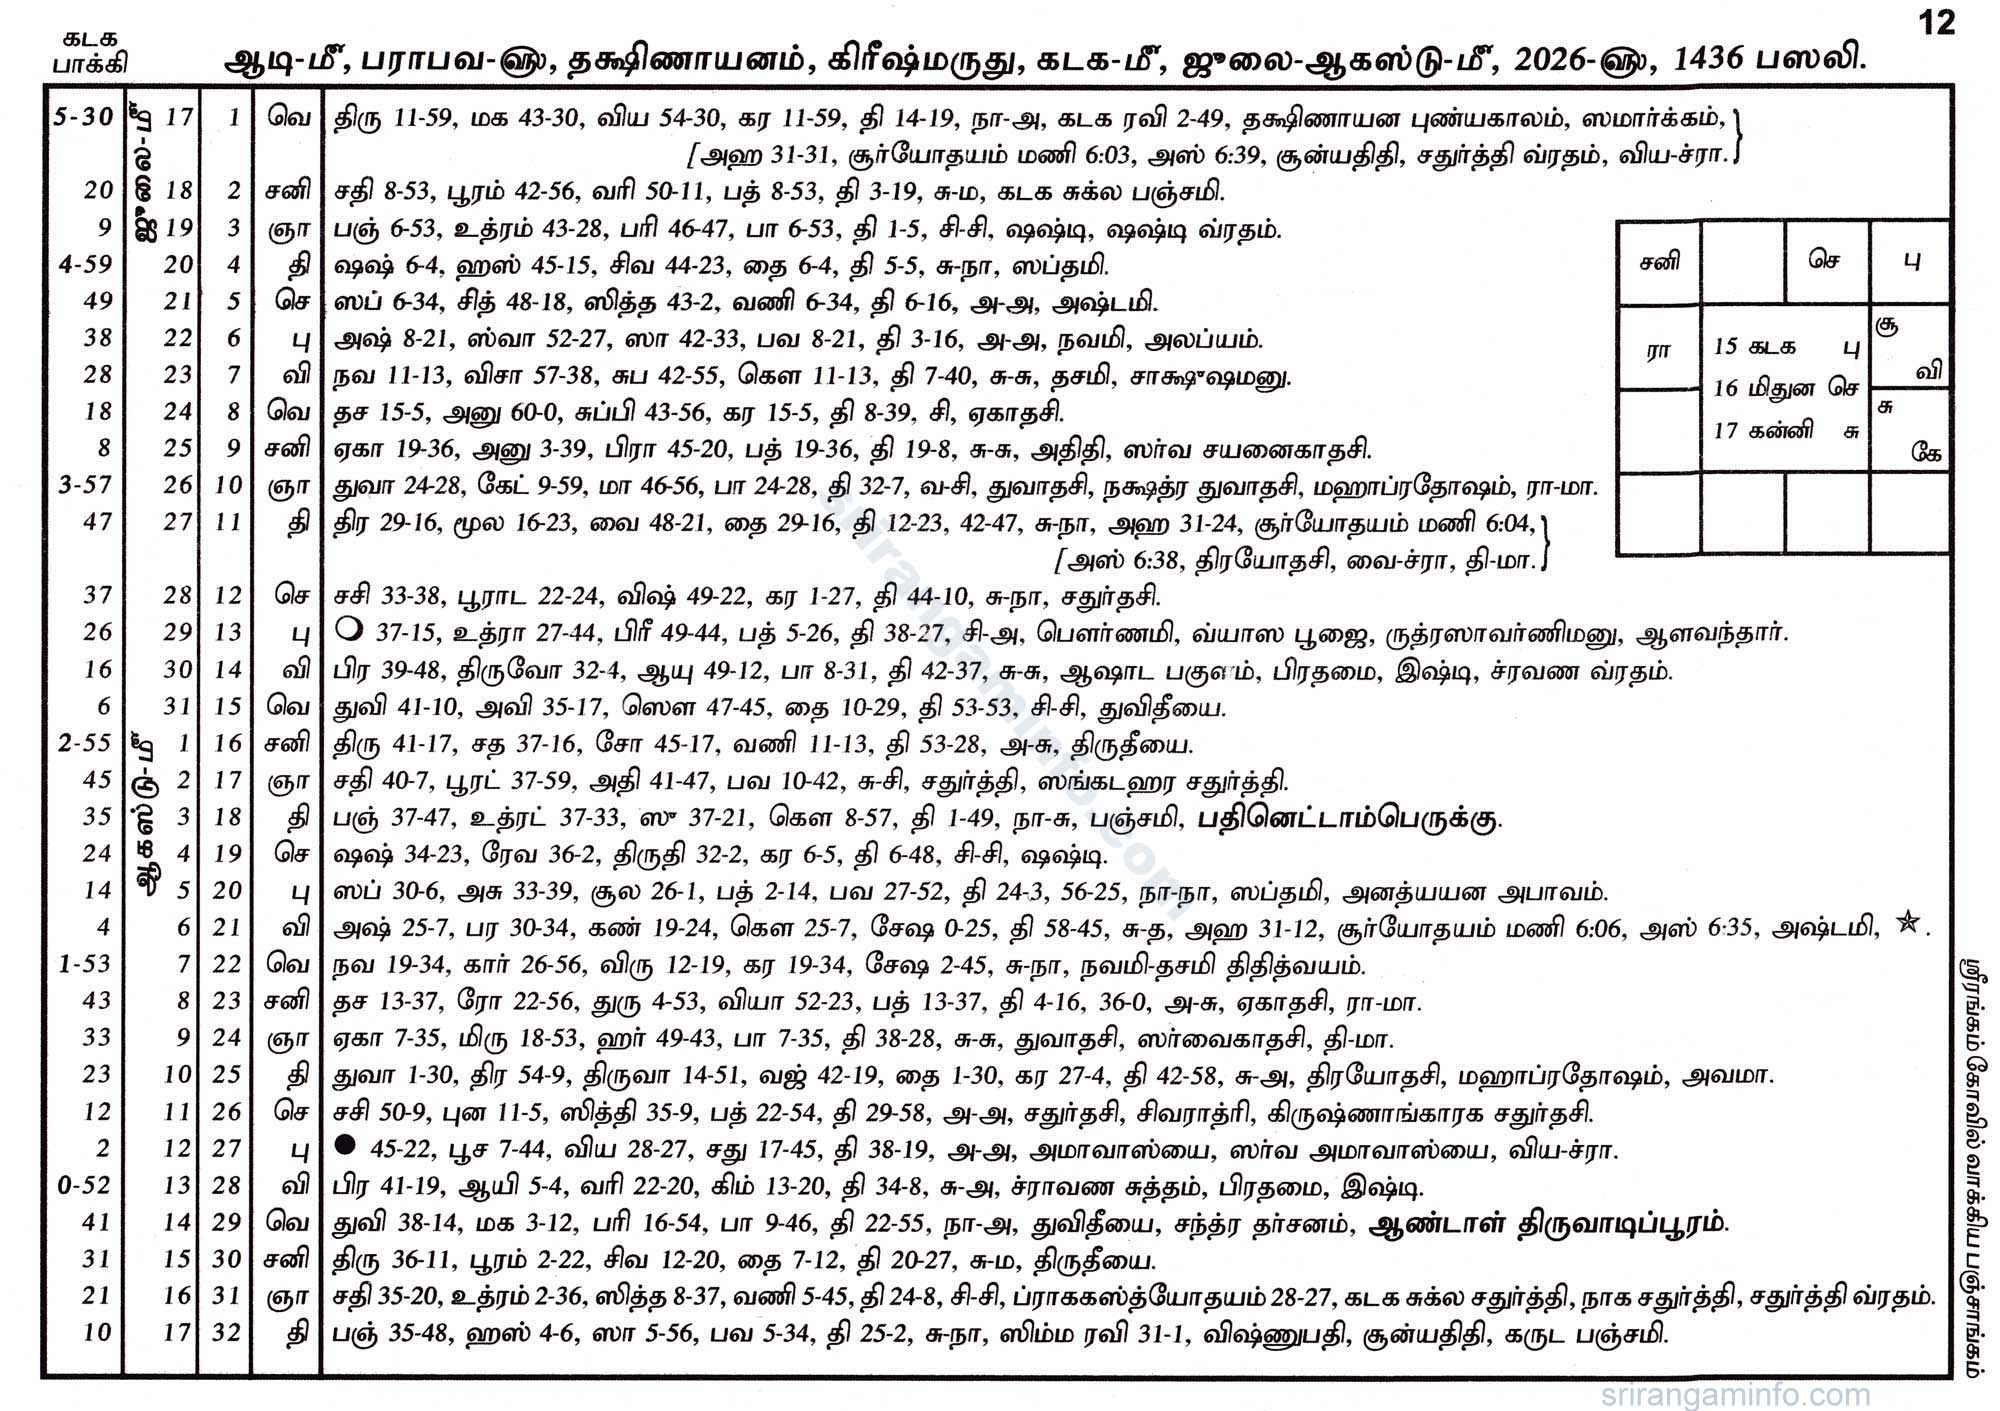 12
கடக
பாக்கி
ஆடி-மீ, பராபவ-௵, தக்ஷிணாயனம், கிரீஷ்மருது, கடக-மீ, ஜுலை-ஆகஸ்டு-மீ, 2026-௵, 1436 பஸலி.
ஜுலை-மீ
5-30 17 1 வெ திரு 11-59, மக 43-30, விய 54-30, கர 11-59, தி 14-19, நா-அ, கடக ரவி 2-49, தக்ஷிணாயன புண்யகாலம், ஸமார்க்கம்,
[அஹ 31-31, சூர்யோதயம் மணி 6:03, அஸ் 6:39, சூன்யதிதி, சதுர்த்தி வ்ரதம், விய-ச்ரா.
20 18 2 சனி சதி 8-53, பூரம் 42-56, வரி 50-11, பத் 8-53, தி 3-19, சு-ம, கடக சுக்ல பஞ்சமி.
9 19 3 ஞா பஞ் 6-53, உத்ரம் 43-28, பரி 46-47, பா 6-53, தி 1-5, சி-சி, ஷஷ்டி, ஷஷ்டி வ்ரதம்.
4-59 20 4 தி ஷஷ் 6-4, ஹஸ் 45-15, சிவ 44-23, தை 6-4, தி 5-5, சு-நா, ஸப்தமி.
49 21 5 செ ஸப் 6-34, சித் 48-18, ஸித்த 43-2, வணி 6-34, தி 6-16, அ-அ, அஷ்டமி.
38 22 6 பு அஷ் 8-21, ஸ்வா 52-27, ஸா 42-33, பவ 8-21, தி 3-16, அ-அ, நவமி, அலப்யம்.
28 23 7 வி நவ 11-13, விசா 57-38, சுப 42-55, கௌ 11-13, தி 7-40, சு-சு, தசமி, சாக்ஷுஷமனு.
18 24 8 வெ தச 15-5, அனு 60-0, சுப்பி 43-56, கர 15-5, தி 8-39, சி, ஏகாதசி.
8 25 9 சனி ஏகா 19-36, அனு 3-39, பிரா 45-20, பத் 19-36, தி 19-8, சு-சு, அதிதி, ஸர்வ சயனைகாதசி.
3-57 26 10 ஞா துவா 24-28, கேட் 9-59, மா 46-56, பா 24-28, தி 32-7, வ-சி, துவாதசி, நக்ஷத்ர துவாதசி, மஹாப்ரதோஷம், ரா-மா.
47 27 11 தி திர 29-16, மூல 16-23, வை 48-21, தை 29-16, தி 12-23, 42-47, சு-நா, அஹ 31-24, சூர்யோதயம் மணி 6:04,
[அஸ் 6:38, திரயோதசி, வை-ச்ரா, தி-மா.
37 28 12 செ சசி 33-38, பூராட 22-24, விஷ் 49-22, கர 1-27, தி 44-10, சு-நா, சதுர்தசி.
26 29 13 பு 37-15, உத்ரா 27-44, பிரீ 49-44, பத் 5-26, தி 38-27, சி-அ, பௌர்ணமி, வ்யாஸ பூஜை, ருத்ரஸாவர்ணிமனு, ஆளவந்தார்.
16 30 14 வி பிர 39-48, திருவோ 32-4, ஆயு 49-12, பா 8-31, தி 42-37, சு-சு, ஆஷாட பகுளம், பிரதமை, இஷ்டி, ச்ரவண வ்ரதம்.
6 31 15 வெ துவி 41-10, அவி 35-17, ஸௌ 47-45, தை 10-29, தி 53-53, சி-சி, துவிதீயை.
ஆகஸ்டு-மீ
2-55 1 16 சனி திரு 41-17, சத 37-16, சோ 45-17, வணி 11-13, தி 53-28, அ-சு, திருதீயை.
45 2 17 ஞா சதி 40-7, பூரட் 37-59, அதி 41-47, பவ 10-42, சு-சி, சதுர்த்தி, ஸங்கடஹர சதுர்த்தி.
35 3 18 தி பஞ் 37-47, உத்ரட் 37-33, ஸு 37-21, கௌ 8-57, தி 1-49, நா-சு, பஞ்சமி, பதினெட்டாம்பெருக்கு.
24 4 19 செ ஷஷ் 34-23, ரேவ 36-2, திருதி 32-2, கர 6-5, தி 6-48, சி-சி, ஷஷ்டி.
14 5 20 பு ஸப் 30-6, அசு 33-39, சூல 26-1, பத் 2-14, பவ 27-52, தி 24-3, 56-25, நா-நா, ஸப்தமி, அனத்யயன அபாவம்.
4 6 21 வி அஷ் 25-7, பர 30-34, கண் 19-24, கௌ 25-7, சேஷ 0-25, தி 58-45, சு-த, அஹ 31-12, சூர்யோதயம் மணி 6:06, அஸ் 6:35, அஷ்டமி, ☆.
1-53 7 22 வெ நவ 19-34, கார் 26-56, விரு 12-19, கர 19-34, சேஷ 2-45, சு-நா, நவமி-தசமி திதித்வயம்.
43 8 23 சனி தச 13-37, ரோ 22-56, துரு 4-53, வியா 52-23, பத் 13-37, தி 4-16, 36-0, அ-சு, ஏகாதசி, ரா-மா.
33 9 24 ஞா ஏகா 7-35, மிரு 18-53, ஹர் 49-43, பா 7-35, தி 38-28, சு-சு, துவாதசி, ஸர்வைகாதசி, தி-மா.
23 10 25 தி துவா 1-30, திர 54-9, திருவா 14-51, வஜ் 42-19, தை 1-30, கர 27-4, தி 42-58, சு-அ, திரயோதசி, மஹாப்ரதோஷம், அவமா.
12 11 26 செ சசி 50-9, புன 11-5, ஸித்தி 35-9, பத் 22-54, தி 29-58, அ-அ, சதுர்தசி, சிவராத்ரி, கிருஷ்ணாங்காரக சதுர்தசி.
2 12 27 பு 45-22, பூச 7-44, விய 28-27, சது 17-45, தி 38-19, அ-அ, அமாவாஸ்யை, ஸர்வ அமாவாஸ்யை, விய-ச்ரா.
0-52 13 28 வி பிர 41-19, ஆயி 5-4, வரி 22-20, கிம் 13-20, தி 34-8, சு-அ, ச்ராவண சுத்தம், பிரதமை, இஷ்டி.
41 14 29 வெ துவி 38-14, மக 3-12, பரி 16-54, பா 9-46, தி 22-55, நா-அ, துவிதீயை, சந்த்ர தர்சனம், ஆண்டாள் திருவாடிப்பூரம்.
31 15 30 சனி திரு 36-11, பூரம் 2-22, சிவ 12-20, தை 7-12, தி 20-27, சு-ம, திருதீயை.
21 16 31 ஞா சதி 35-20, உத்ரம் 2-36, ஸித்த 8-37, வணி 5-45, தி 24-8, சி-சி, ப்ராககஸ்த்யோதயம் 28-27, கடக சுக்ல சதுர்த்தி, நாக சதுர்த்தி, சதுர்த்தி வ்ரதம்.
10 17 32 தி பஞ் 35-48, ஹஸ் 4-6, ஸா 5-56, பவ 5-34, தி 25-2, சு-நா, ஸிம்ம ரவி 31-1, விஷ்ணுபதி, சூன்யதிதி, கருட பஞ்சமி.
சனி செ பு
ரா
சூ
வி
சு
கே
15 கடக பு
16 மிதுன செ
17 கன்னி சு
ஸ்ரீரங்கம் கோவில் வாக்கிய பஞ்சாங்கம்
srirangaminfo.com
srirangaminfo.com